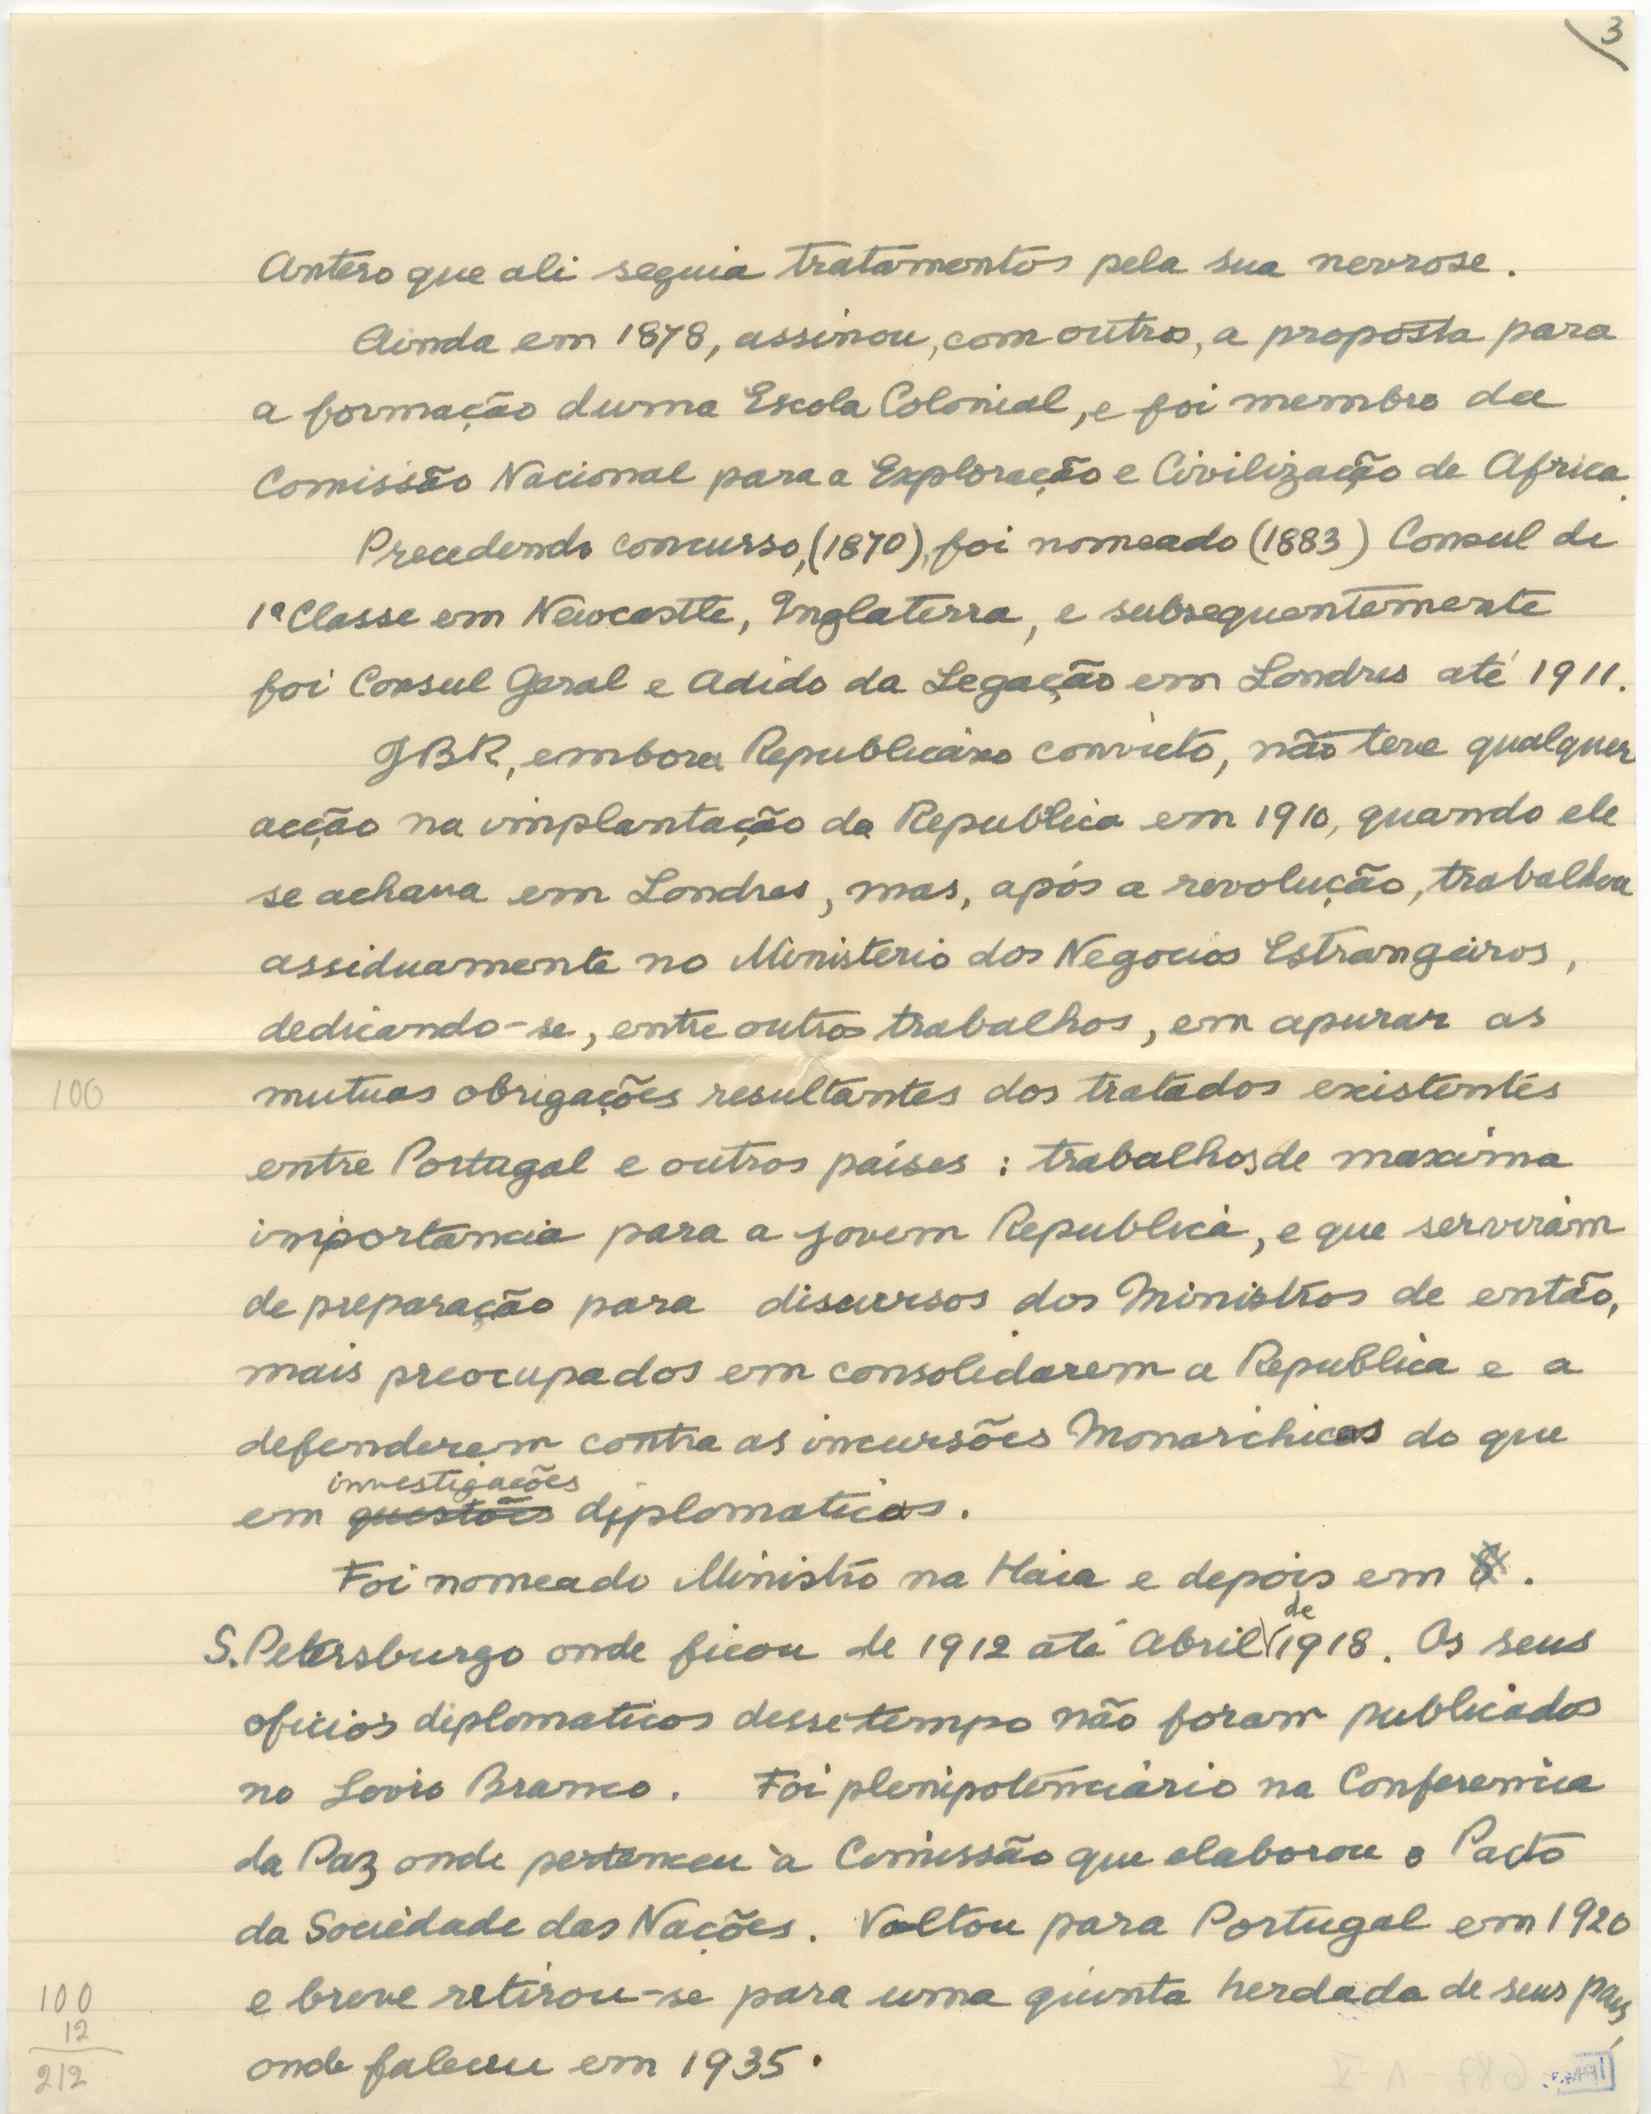 3
Antero que ali seguia tratamentos pela sua nevrose.
Ainda em 1878, assinou, com outros, a proposta para
a formação duma Escola Colonial, e foi membro da
Comissão Nacional para a Exploração e Civilização de Africa.
Precedendo concurso, (1870), foi nomeado (1883) Consul de
1ª Classe em Newcastle, Inglaterra, e subsequentemente
foi Consul Geral e Adido da Legação em Londres até 1911.
JBR, embora Republicano convicto, não teve qualquer
acção na implantação da Republica em 1910, quando ele
se achava em Londres, mas, após a revolução, trabalhou
assiduamente no Ministerio dos Negocios Estrangeiros,
dedicando-se, entre outros trabalhos, em apurar as
100
mutuas obrigações resultantes dos tratados existentes
entre Portugal e outros países : trabalhos de maxima
importancia para a jovem Republica, e que serviram
de preparação para discursos dos Ministros de então,
mais preocupados em consolidarem a Republica e a
defenderem contra as incursões Monarchicas do que
investigações
em questões diplomaticas.
Foi nomeado Ministro na Haia e depois em S.
de
S. Petersburgo onde ficou de 1912 até Abril 1918. Os seus
oficios diplomaticos desse tempo não foram publicados
no Lovro Branco. Foi plenipotenciário na Conferencia
da Paz onde pertenceu à Comissão que elaborou o Pacto
da Sociedade das Nações. Voltou para Portugal em 1920
e breve retirou-se para uma quinta herdada de seus pais,
onde faleceu em 1935.
100
12
212